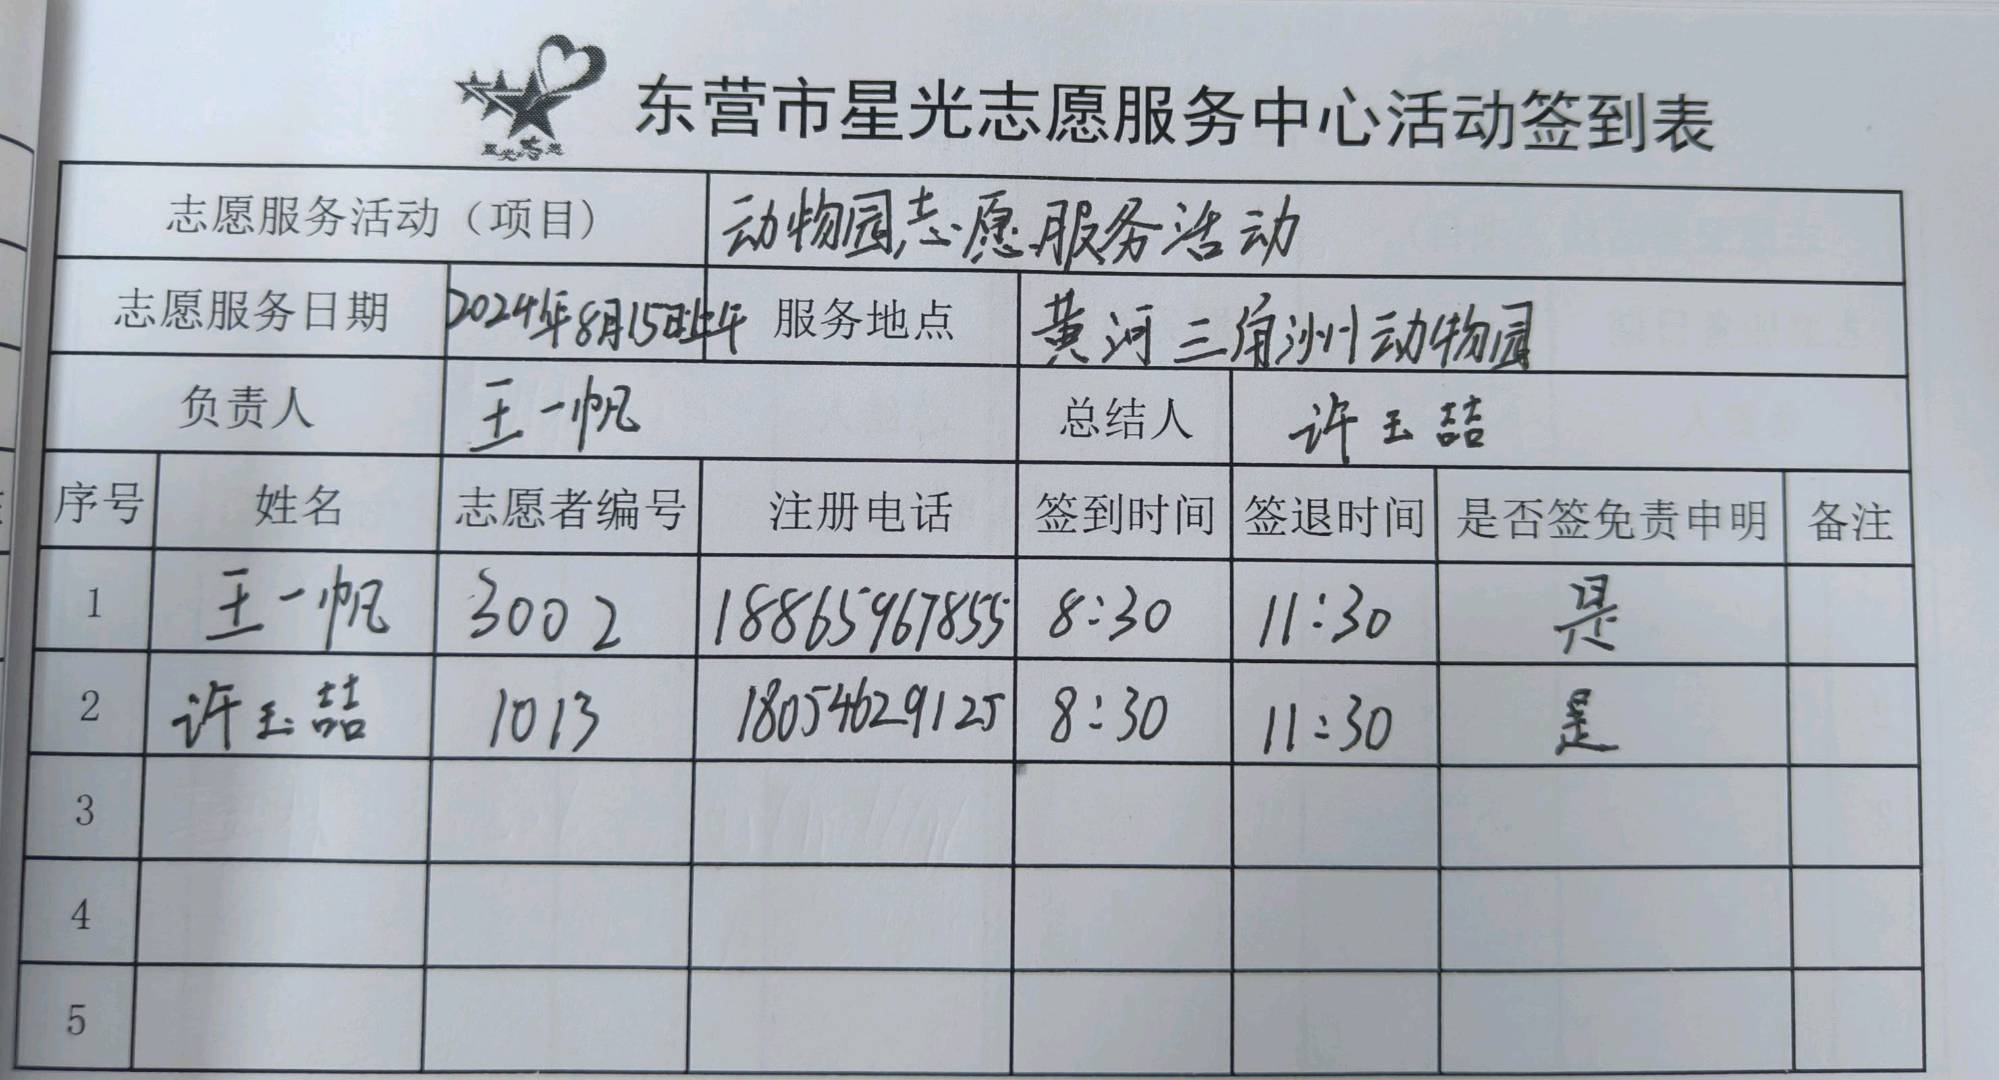 东营市星光志愿服务中心活动签到表
志愿服务活动（项目） 动物园志愿服务活动
志愿服务日期 2024年8月15日上午 服务地点 黄河三角洲动物园
负责人 王一帆 总结人 许玉喆
序号 姓名 志愿者编号 注册电话 签到时间 签退时间 是否签免责申明 备注
1 王一帆 3002 18865967855 8:30 11:30 是
2 许玉喆 1013 18054629125 8:30 11:30 是
3
4
5